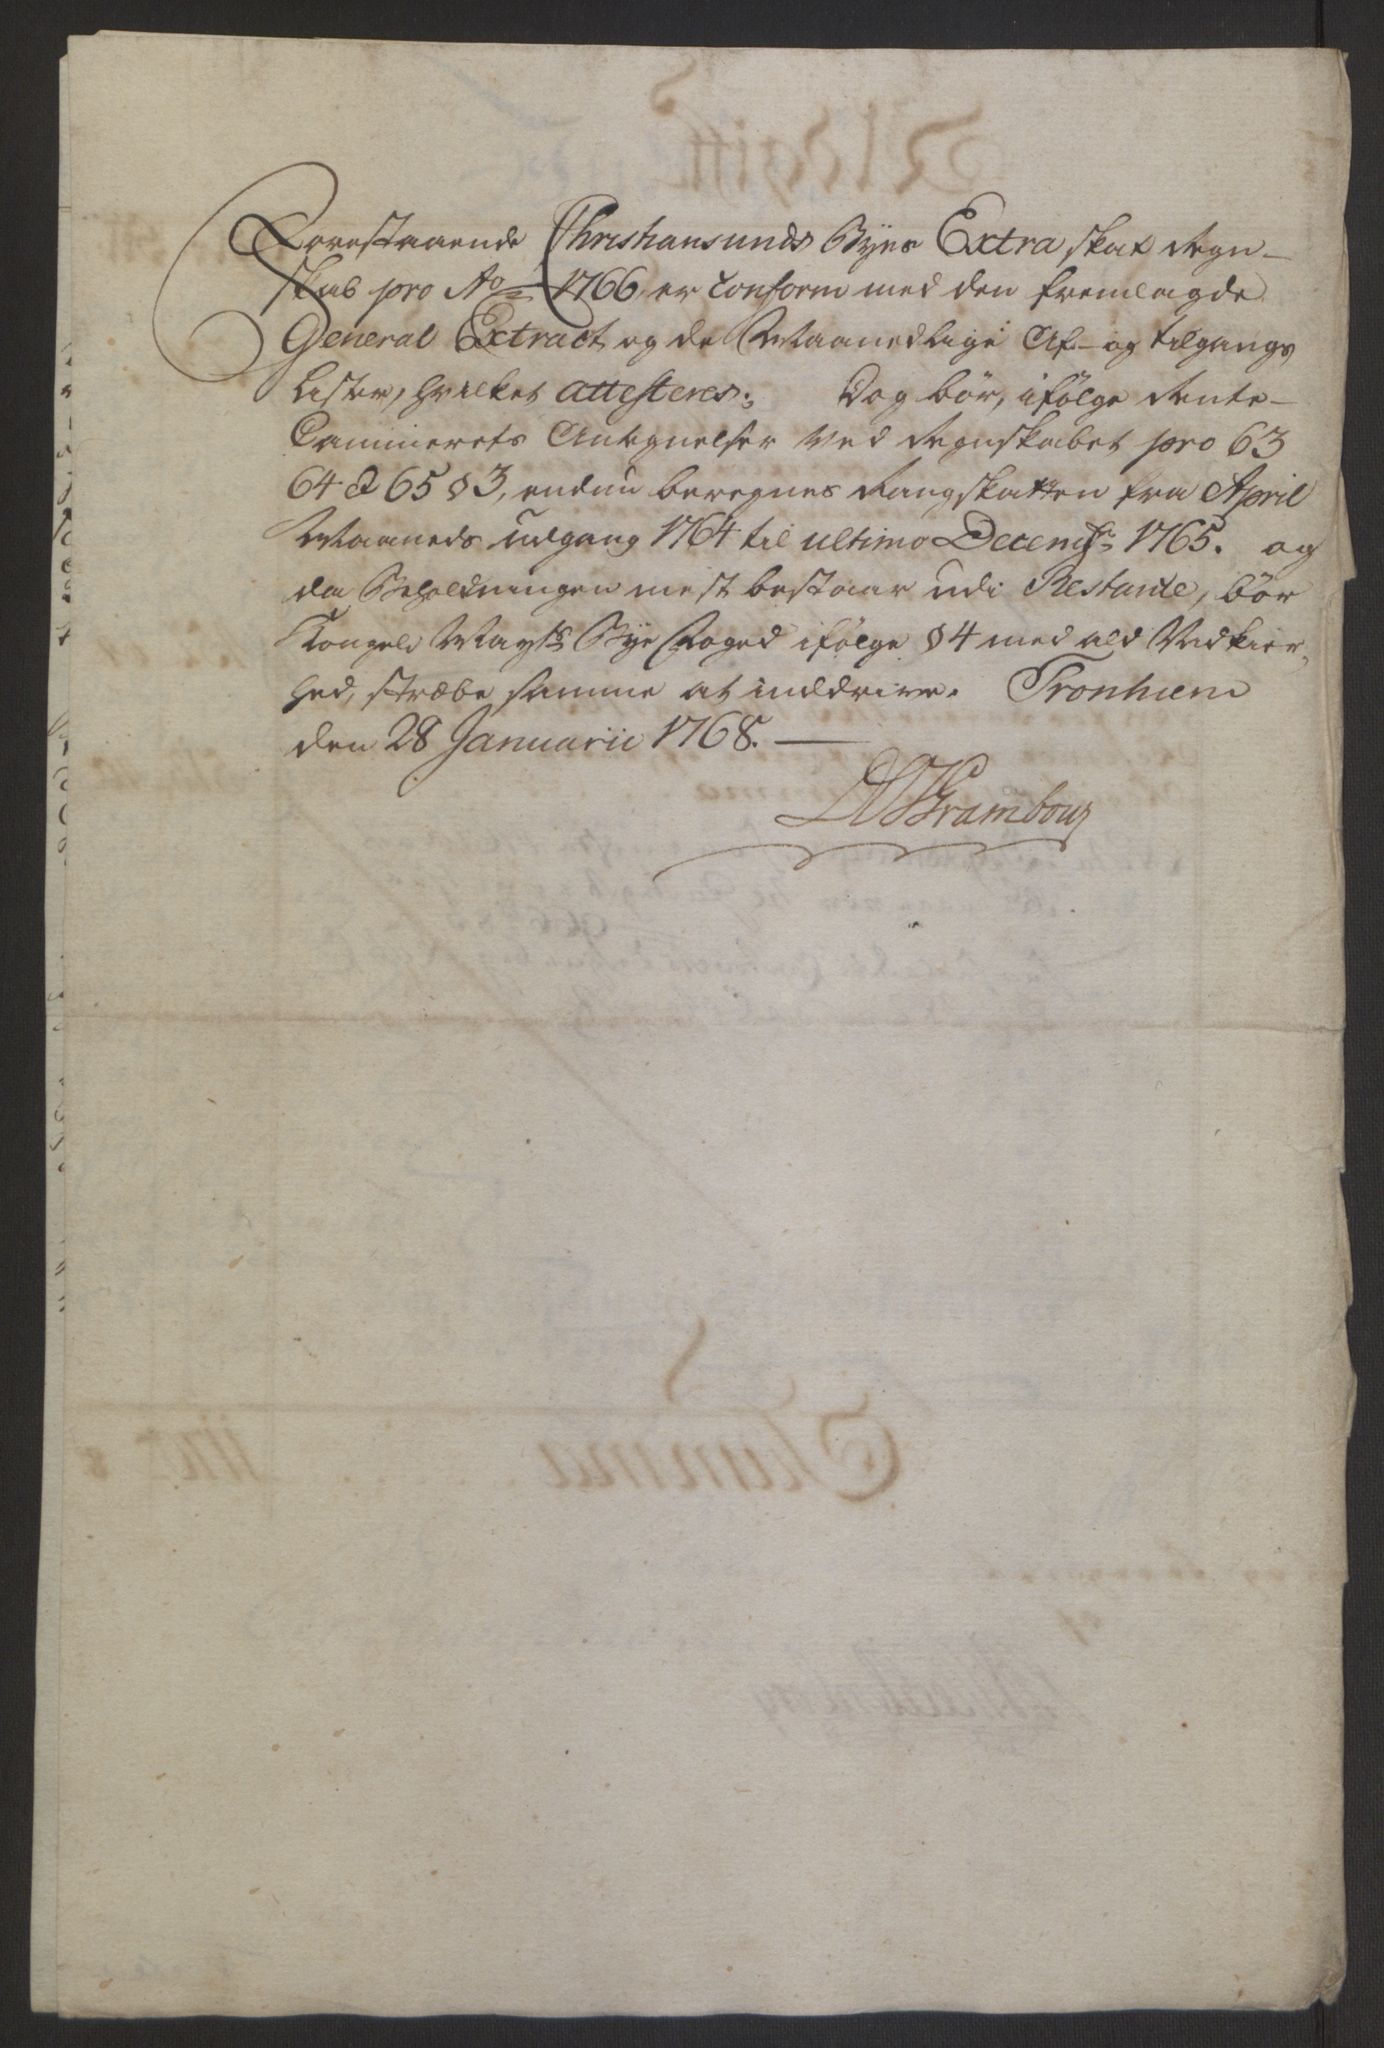 Forestaaende Christiansunds Byes Extra skat Regn-
skab pro Ao 1766, er Conform med den fremlagde
General Extract og de Maanedlige Af- og tilgangs
Lister, hvilket attesteres. Dog bør, ifølge Rente-
Cammerets Antegnelser ved Regnskabet pro 63
64 & 65 § 3, endnu beregnes Rangskatten fra April
Maaneds udgang 1764 til ultimo Decembr 1765. og
da Beholdningen mest bestaar udi Restantz, bør
Kongel Mayts Bye Foged ifølge § 4 med ald Vidkier-
hed, stræbe samme at inddrive. Tronhiem
den 28 Januarii 1768.